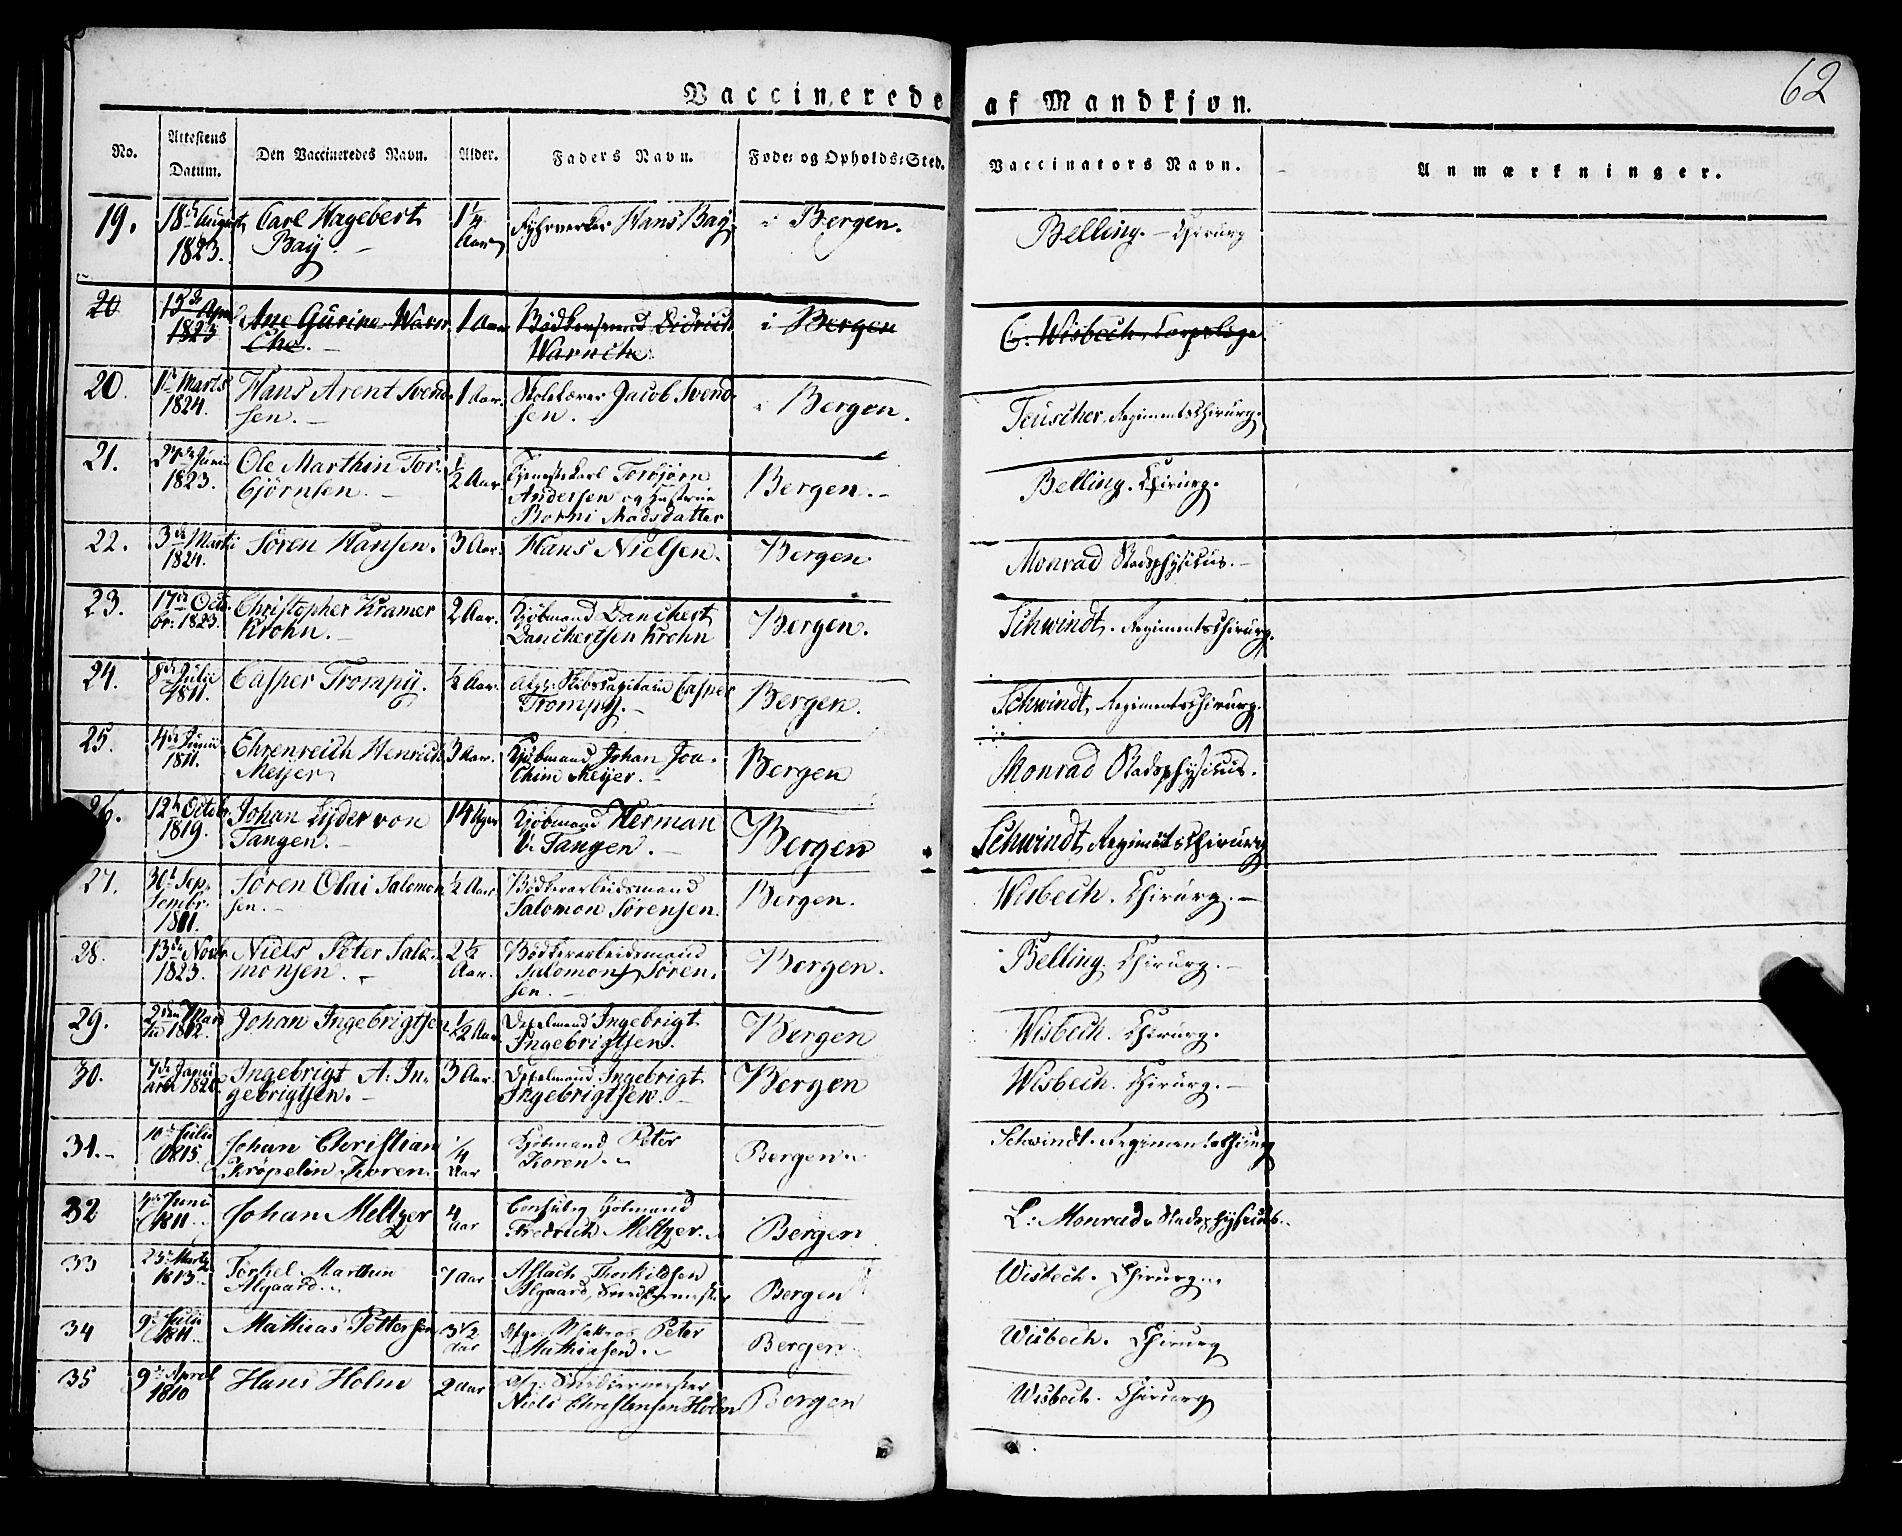 62
Vaccinerede af Mandkjøn.
No. Attestens Datum. Den Vaccineredes Navn. Alder. Faders Navn. Føde- og Opholds-Sted. Vaccinators Navn. Anmærkninger.
19. 18de August Carl Hagebert 1 1/4 Hans Bay i Bergen. Belling. Chirurg
1823. Bay. Aar
20 Ane Gurine Warn 1 Aar Didrich i Bergen C. Wisbech,
1823 che. Warnche.
20. 1ste Marts Hans Arent Svend- 1 Aar. Skolelærer Jacob Svend- Bergen. Teuscher, Regimentschirurg.
1824. sen. sen.
21. Juni Ole Marthin Tor- 1/2 Aar. Tjenestekarl Torbjørn Bergen. Belling. Chirurg.
1823. bjørnsen. Andersen og Hustrue
Madsdatter
22. 3de Marti Søren Hansen. 3 Aar. Hans Nielsen. Bergen Monrad Stadsphysicus.
1824.
23. 17de Octo- Christopher Kramer 2 Aar. Kjøbmand Danchert Bergen. Schwindt. Regimentschirurg.
br. 1823. Krohn. Danchertsen Krohn
24. 8de Julii Casper Trompy. 1/2 Aar. Casper Bergen. Schwindt, Regimentschirurg.
1811. Trompy.
25. 4de Junii Ehrenreich Henrich 3 Aar. Kjøbmand Johan Joa- Bergen Monrad Stadsphysicus.
1811. Meyer chim Meyer.
26. 12te Octobr Johan Lyder von 14 Uger Kjøbmand Herman Bergen Schwindt Regimentschirurg
1819. Tangen. v. Tangen.
27. 30te Sep- Søren Olai Salomon 1/2 Aar Bødkerarbeidsmand Bergen. Wisbech. Chirurg.
tembr. sen. Salomon Sørensen.
1811.
28. 13de Novbr Niels Peter Salo- 2 1/2 Bødkerarbeidsmand Bergen. Belling, Chirurg.
1823. monsen. Aar. Salomon Søren-
sen.
29. 2den Johan Ingebrigtsen 1/2 Aar Ingebrigt Bergen Wisbech. Chirurg.
1812. Ingebrigtsen.
30. 7de Janu- Ingebrigt A: In- 3 Aar. Ingebrigt Bergen Wisbech. Chirurg.
arii 1820 gebrigtsen. Ingebrigtsen.
31. 10de Julii Johan Christian 1/4 Kjøbmand Peter Bergen Schwindt. Regimentschirurg
1815. Krøpelin Koren. Aar Koren.
32 Juni Johan Meltzer 4 Consul og Kjøbmand Bergen L: Monrad. Stadsphysicus.
1811. Aar Fredrich Meltzer.
33 Torkel Marthin 7 Aar Aslach Thorkildsen Bergen Wisbech. Chirurg.
1813. Algaard. Algaard,
34 9de Julii Mathias Pettersen 3 1/2 Peter Bergen Wisbech. Chirurg
1811. Aar Mathiesen.
35 9de April Hans Holm 2 Aar Bergen Wisbech. Chirurg
1810 Niels Christensen Holm